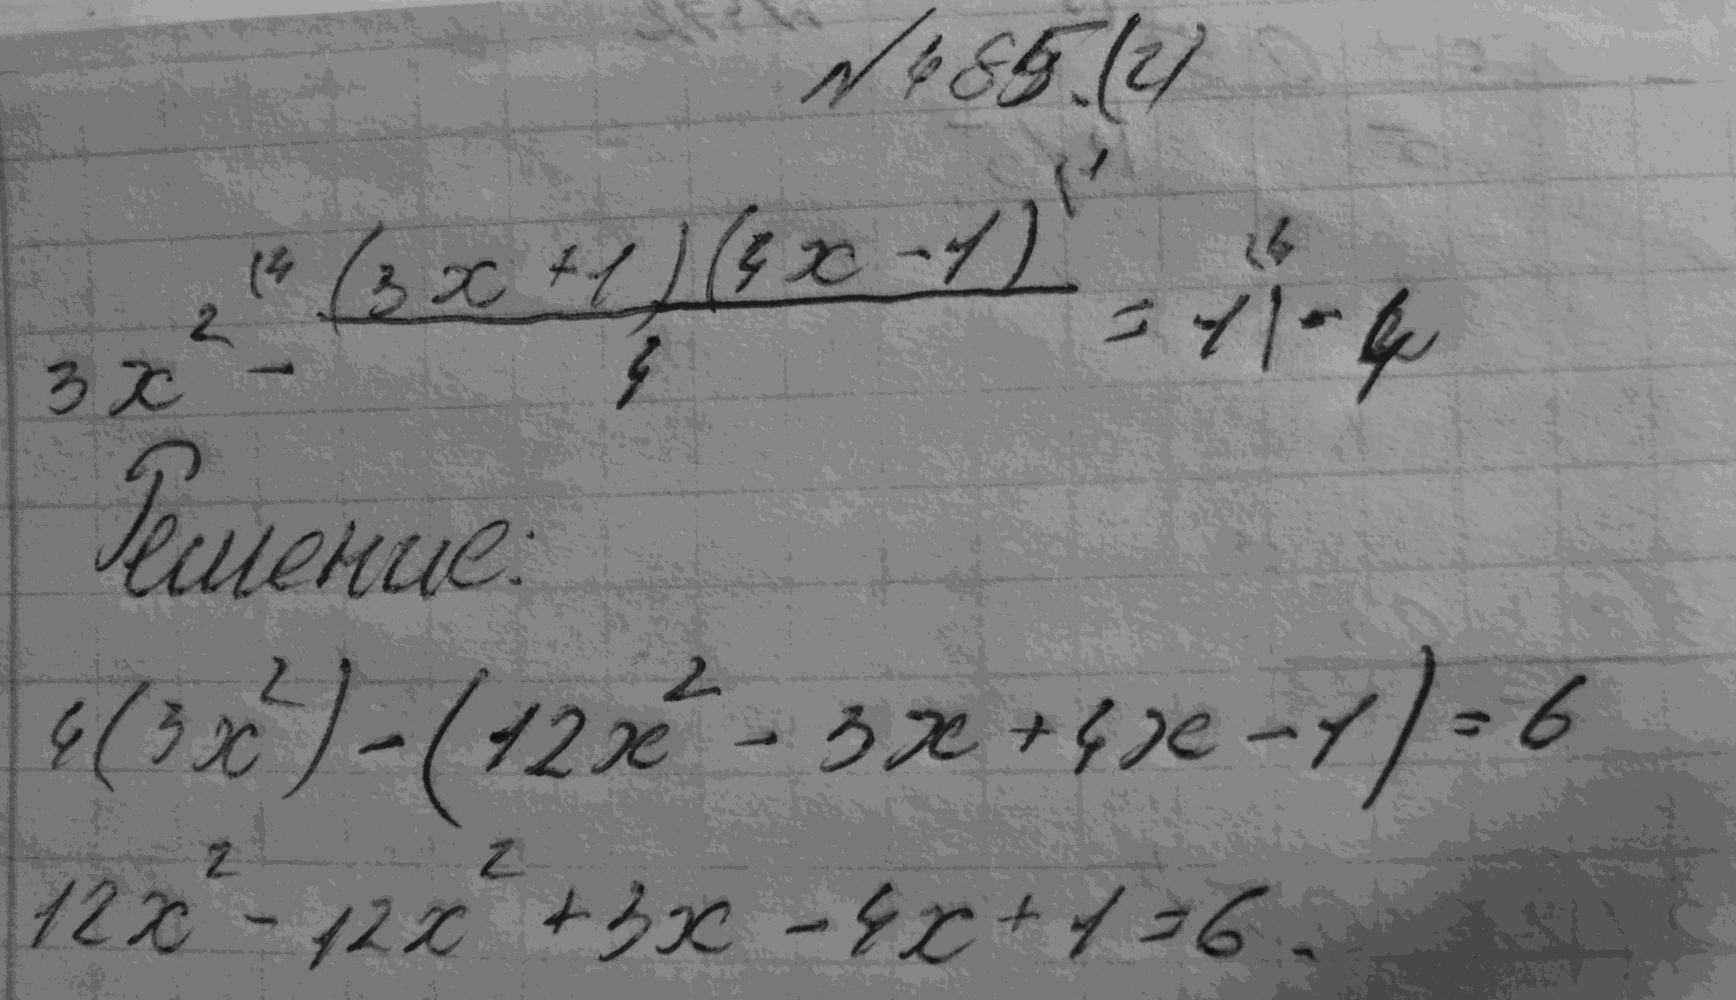 №485.(2)
3x² - (3x+1)(4x-1) / 4 = 1 | · 4
Решение:
4(3x²) - (12x² - 3x + 4x - 1) = 6
12x² - 12x² + 3x - 4x + 1 = 6.